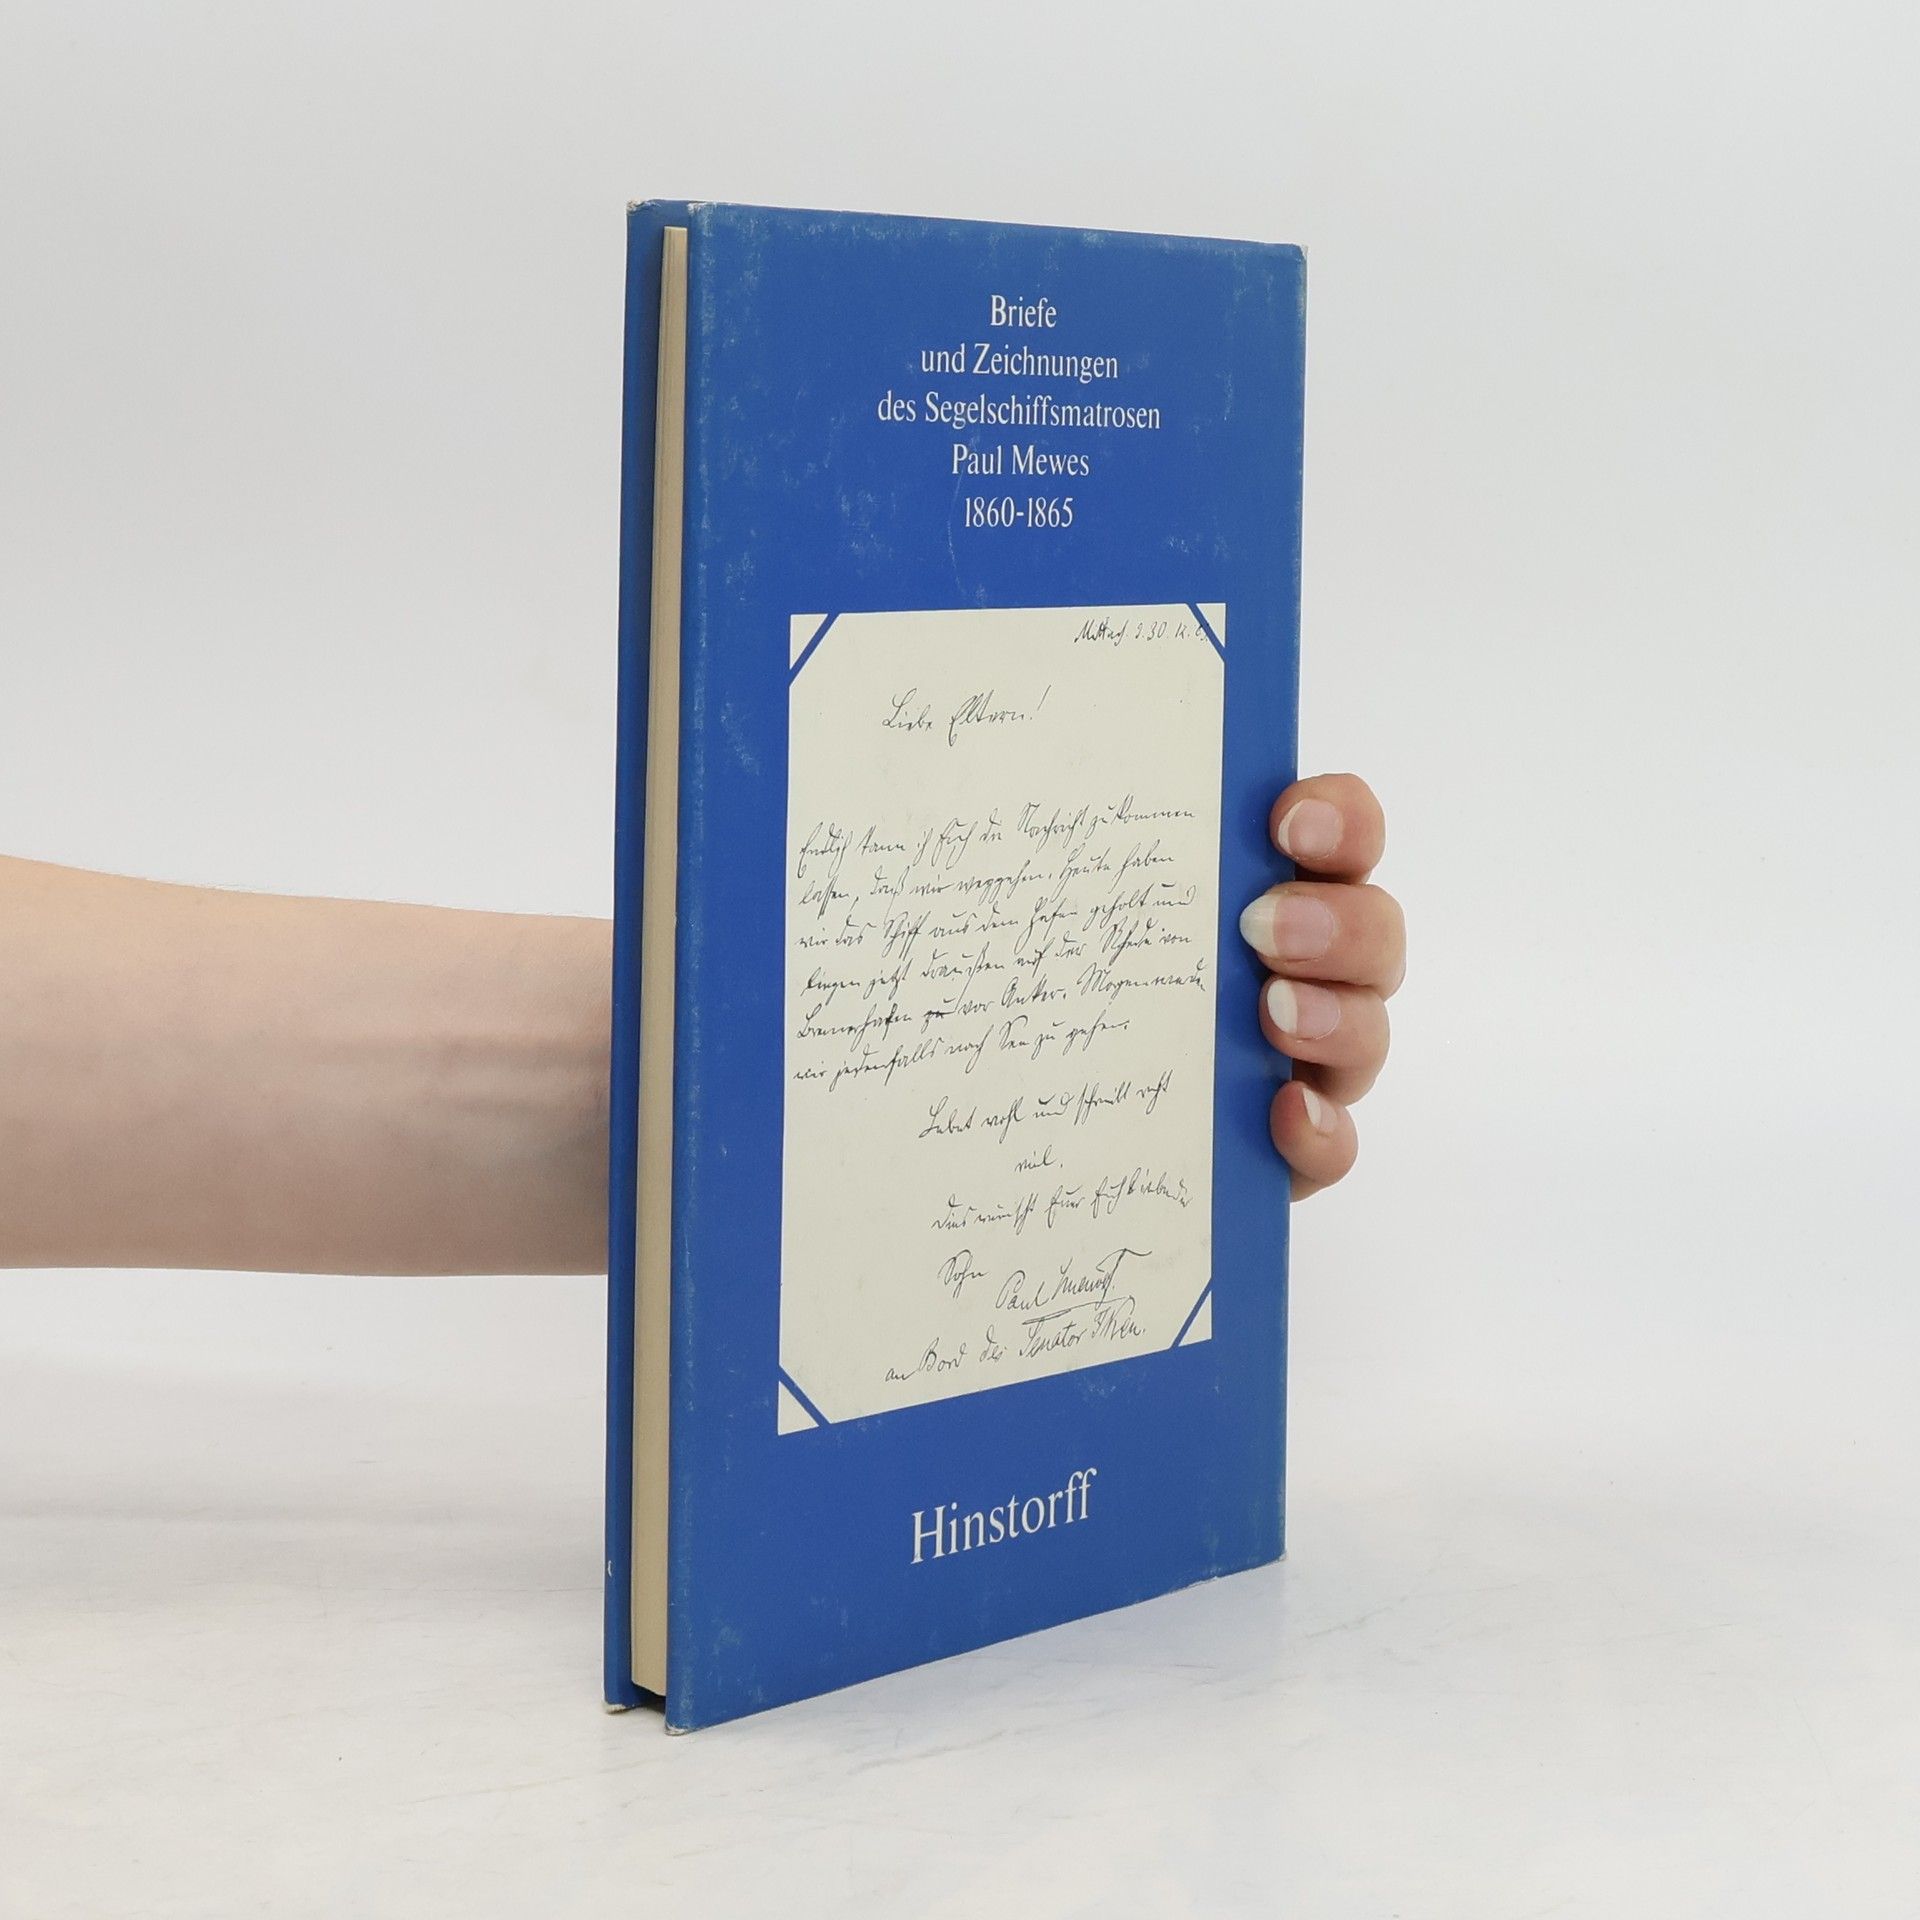 Briefe
und Zeichnungen
des Segelschiffsmatrosen
Paul Mewes
1860-1865
Mittwch. d. 30. 12. 63.
Liebe Eltern!
Endlich kann ich Euch die Nachricht zu kommen
lassen, daß wir weggehen. Heute haben
wir das Schiff aus dem Hafen geholt und
liegen jetzt draußen auf der Rhede von
Bremerhafen zu vor Anker. Morgen
wir jedenfalls nach See zu gehen.
Lebet wohl und schreibt recht
viel.
Dies wünscht Euer Euch liebender
Sohn
Paul Mewes.
an Bord des Senator Iken.
Hinstorff